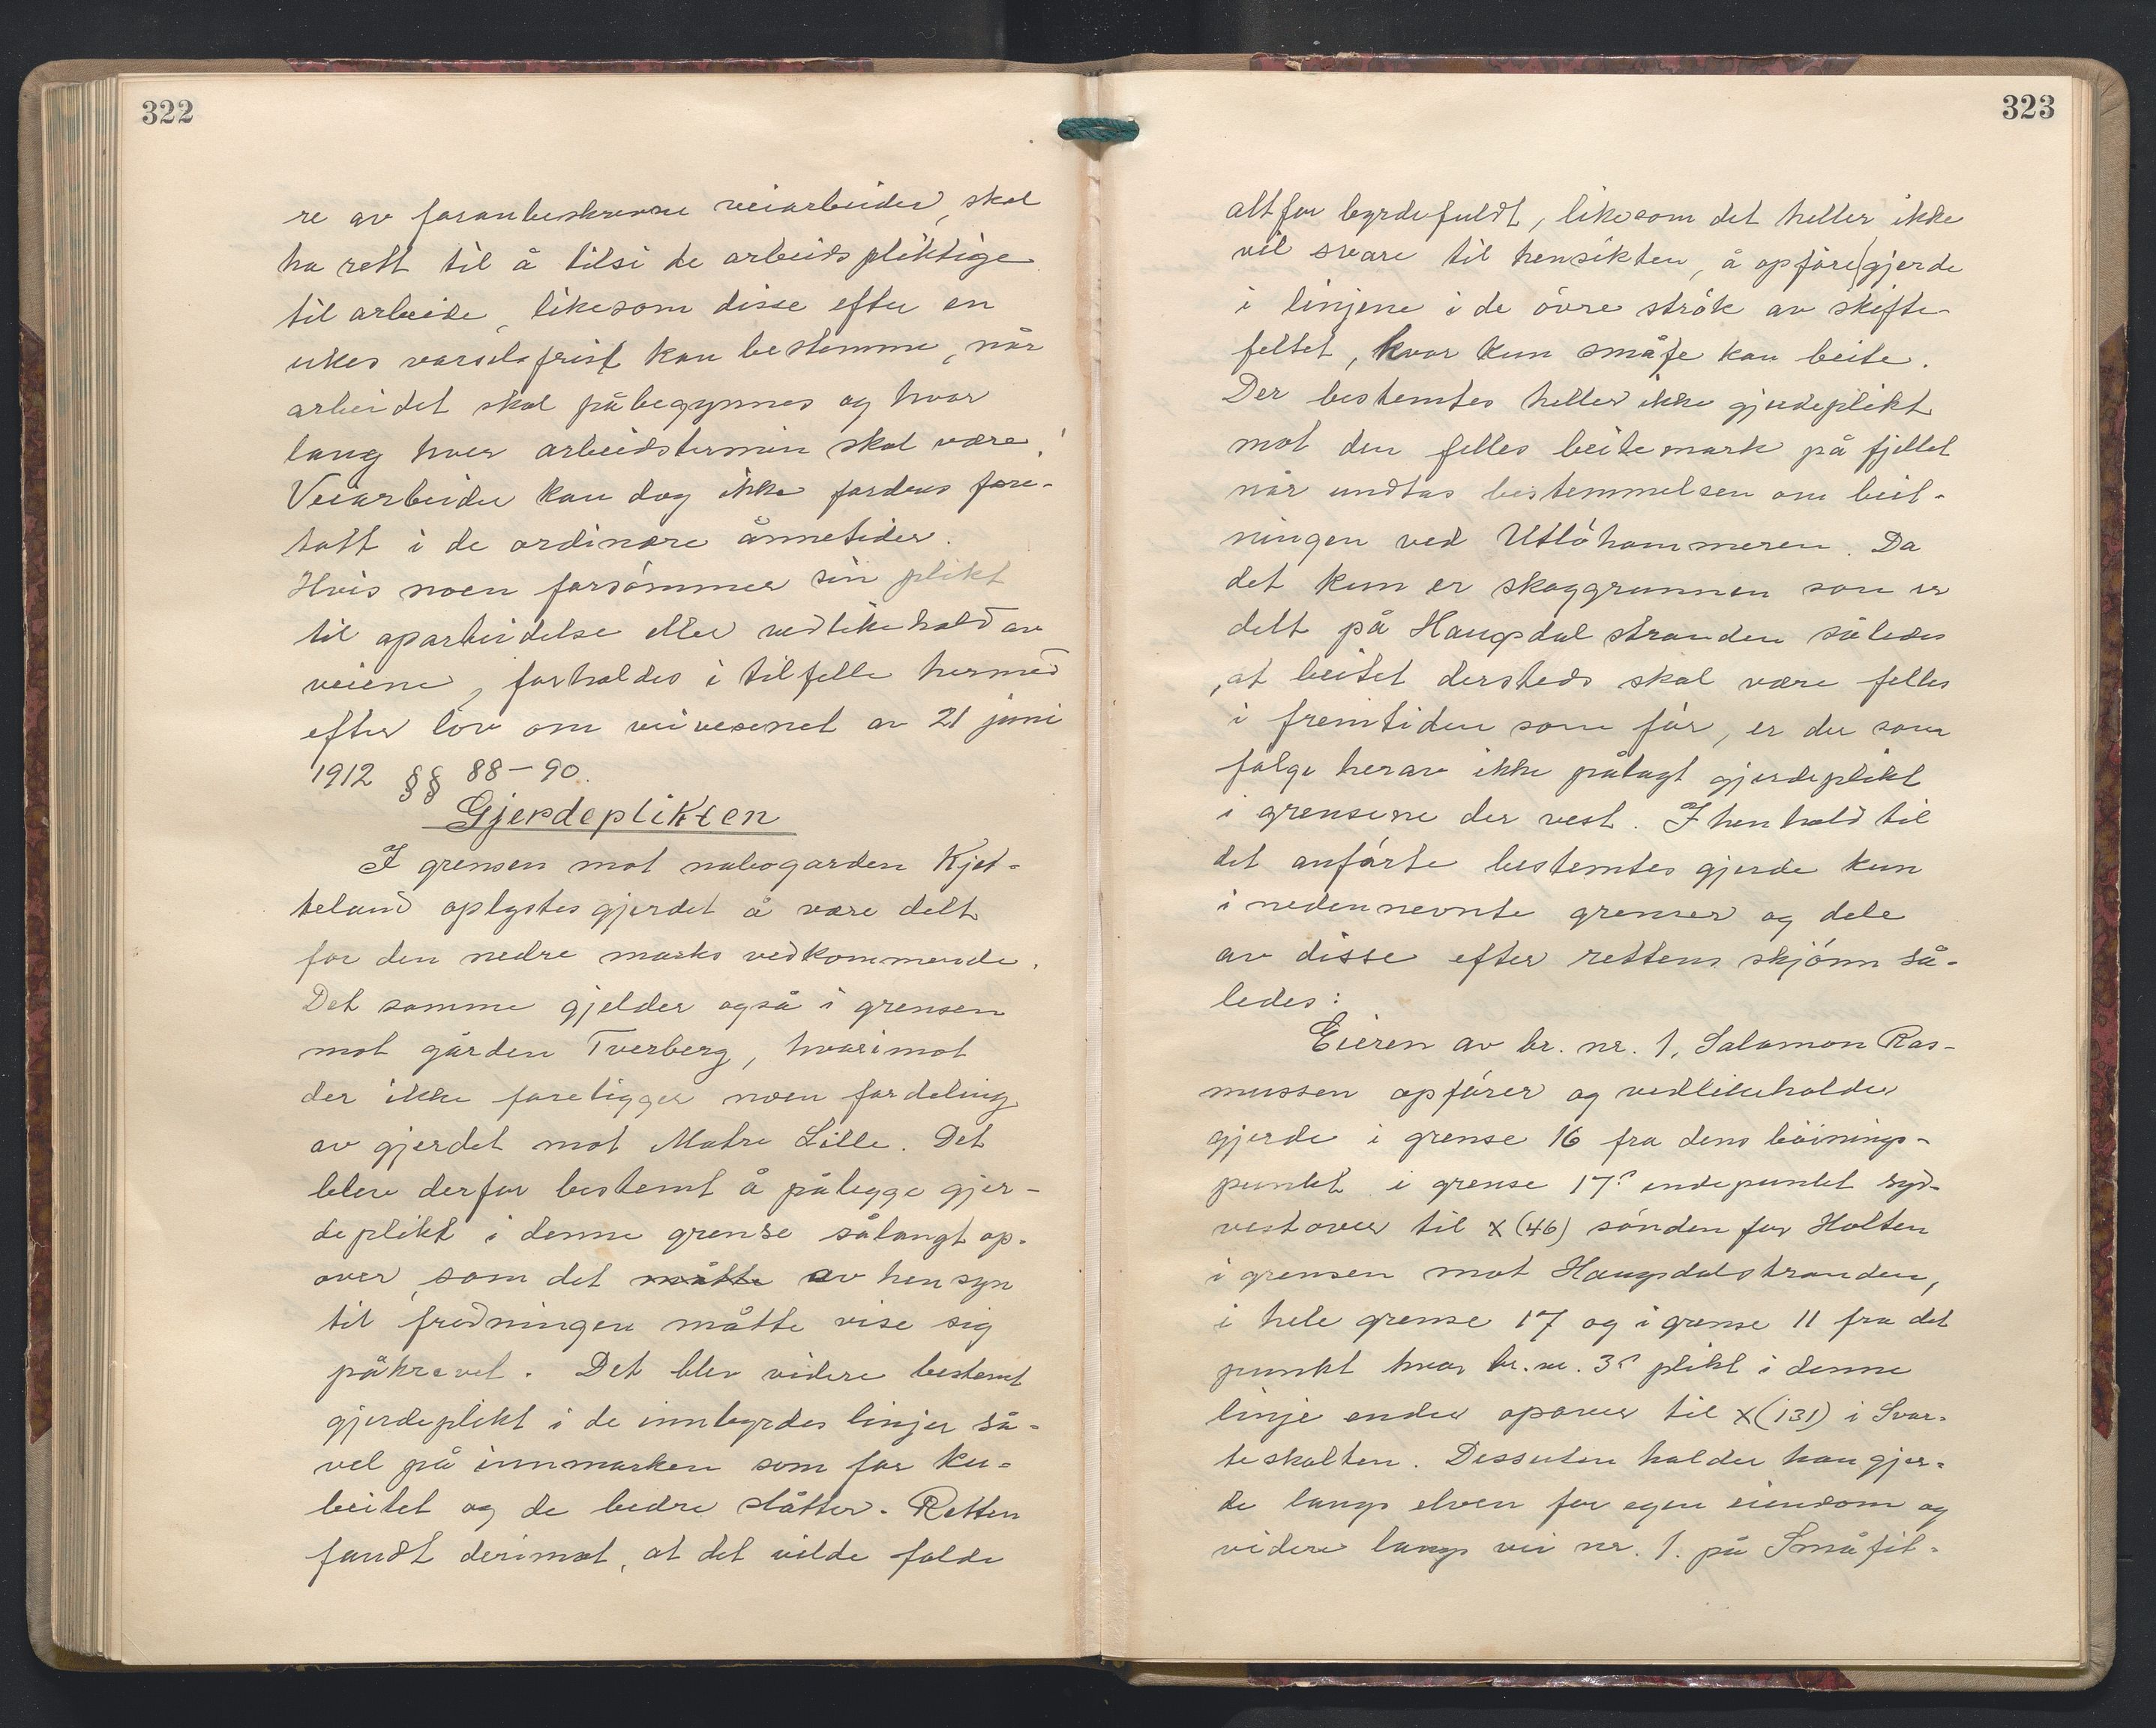 322
re av foranbeskrevne veiarbeider, skal
ha rett til å tilsi de arbeidspliktige
til arbeide, likesom disse efter en
ukes varselsfrist kan bestemme, når
arbeidet skal påbegynnes og hvor
lang hver arbeidstermin skal være.
Veiarbeider kan dog ikke fordres fore-
tatt i de ordinære ånnetider.
Hvis noen forsømmer sin plikt
til oparbeidelse eller vedlikehold av
veiene, forholdes i tilfelle hermed
efter lov om veivesenet av 21 juni
1912 §§ 88-90.
Gjerdeplikten
I grensen mot nabogarden Kjet-
teland oplystes gjerdet å være delt
for den nedre marks vedkommende.
Det samme gjelder også i grensen
mot gården Tverberg, hvorimot
der ikke foreligger noen fordeling
av gjerdet mot Matre Lille. Det
blev derfor bestemt å pålegge gjer-
deplikt i denne grense sålangt op-
over, som det måtte av hensyn
til fredningen måtte vise sig
påkrevet. Det blev videre bestemt
gjerdeplikt i de innbyrdes linjer så-
vel på innmarken som for ku-
beitet og de bedre slåtter. Retten
fandt derimot, at det vilde falde
323
altfor byrdefuldt, likesom det heller ikke
vil svare til hensikten, å opføre gjerde
i linjene i de övre strök av skifte-
feltet, hvor kun småfe kan beite.
Der bestemtes heller ikke gjerdeplikt
mot den felles beitemark på fjellet
når undtas bestemmelsen om beit-
ningen ved Utlöhammeren. Da
det kun er skoggrunnen som er
delt på Haugsdalstranden således
, at beitet dersteds skal være felles
i fremtiden som för, er der som
følge herav ikke pålagt gjerdeplikt
i grensene der vest. I henhold til
det anförte bestemtes gjerde kun
i nedennevnte grenser og dele
av disse efter rettens skjönn så-
ledes:
Eieren av br. nr. 1, Salamon Ras-
mussen opförer og vedlikeholder
gjerde i grense 16 fra dens böinings-
punkt i grense 17s endepunkt syd-
vestover til x (46) sönden for Holten
i grensen mot Haugsdalstranden,
i hele grense 17 og i grense 11 fra det
punkt hvor br. nr. 3s plikt i denne
linje ender opover til x (131) i Svar-
teskolten. Dessuten holder han gjer-
de langs elven for egen eiendom og
videre langs vei nr. 1. på Småfit-